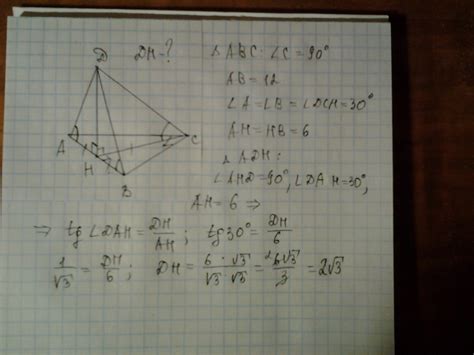 D
DH-?
△ABC: ∠C = 90°
AB = 12
∠A = ∠B = ∠DCH = 30°
AH = HB = 6
△ADH:
∠AHD = 90°, ∠DAH = 30°,
AH = 6 ⇒
A
H
B
C
⇒ tg ∠DAH = DH/AH; tg 30° = DH/6
1/√3 = DH/6; DH = 6·√3/√3·√3 = 6√3/3 = 2√3